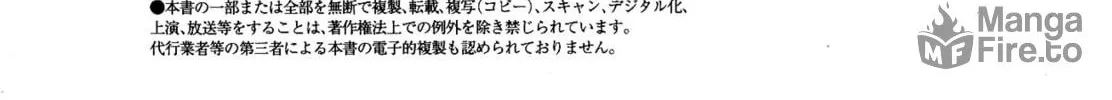 ●本書の一部または全部を無断で複製、転載、複写(コピー)、スキャン、デジタル化、
上演、放送等をすることは、著作権法上での例外を除き禁じられています。
代行業者等の第三者による本書の電子的複製も認められておりません。
MF
Manga
Fire.to